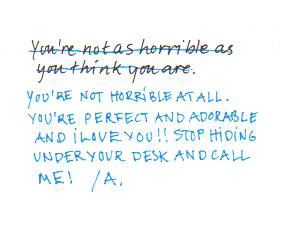 You're not as horrible as
you think you are.
YOU'RE NOT HORRIBLE AT ALL.
YOU'RE PERFECT AND ADORABLE
AND I LOVE YOU!! STOP HIDING
UNDER YOUR DESK AND CALL
ME! /A.